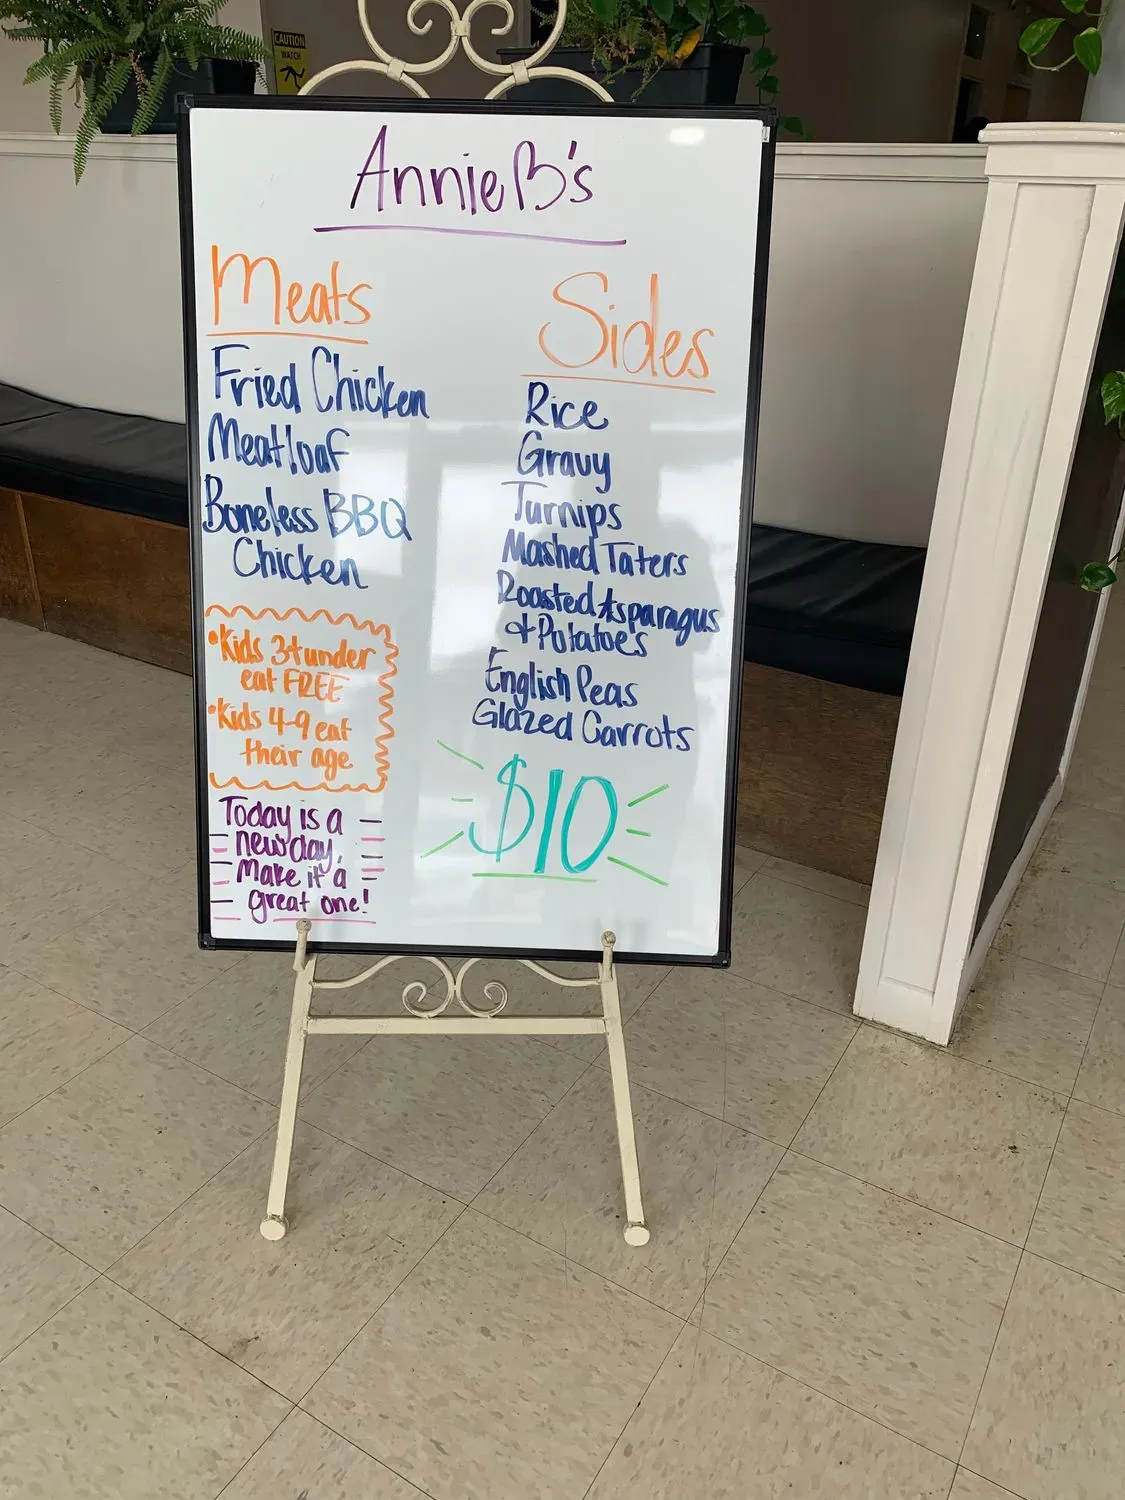 CAUTION
WATCH
Annie B's
Meats
Fried Chicken
Meatloaf
Boneless BBQ
Chicken
•Kids 3+under
eat FREE
•Kids 4-9 eat
their age
Today is a
new day,
Make it a
great one!
Sides
Rice
Gravy
Turnips
Mashed Taters
Roasted Asparagus
+ Potatoes
English Peas
Glazed Carrots
$10